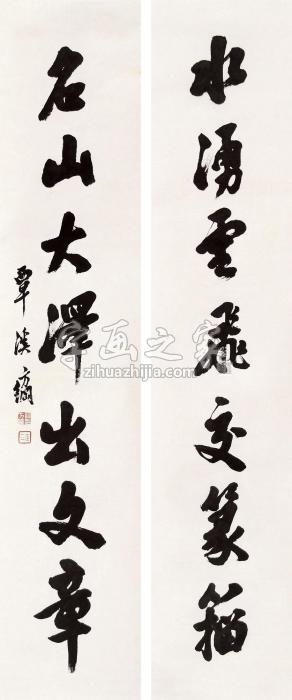 水湧雲飛交篆籀
名山大澤出文章
覃溪方綱
字画之家
zihuazhijia.com